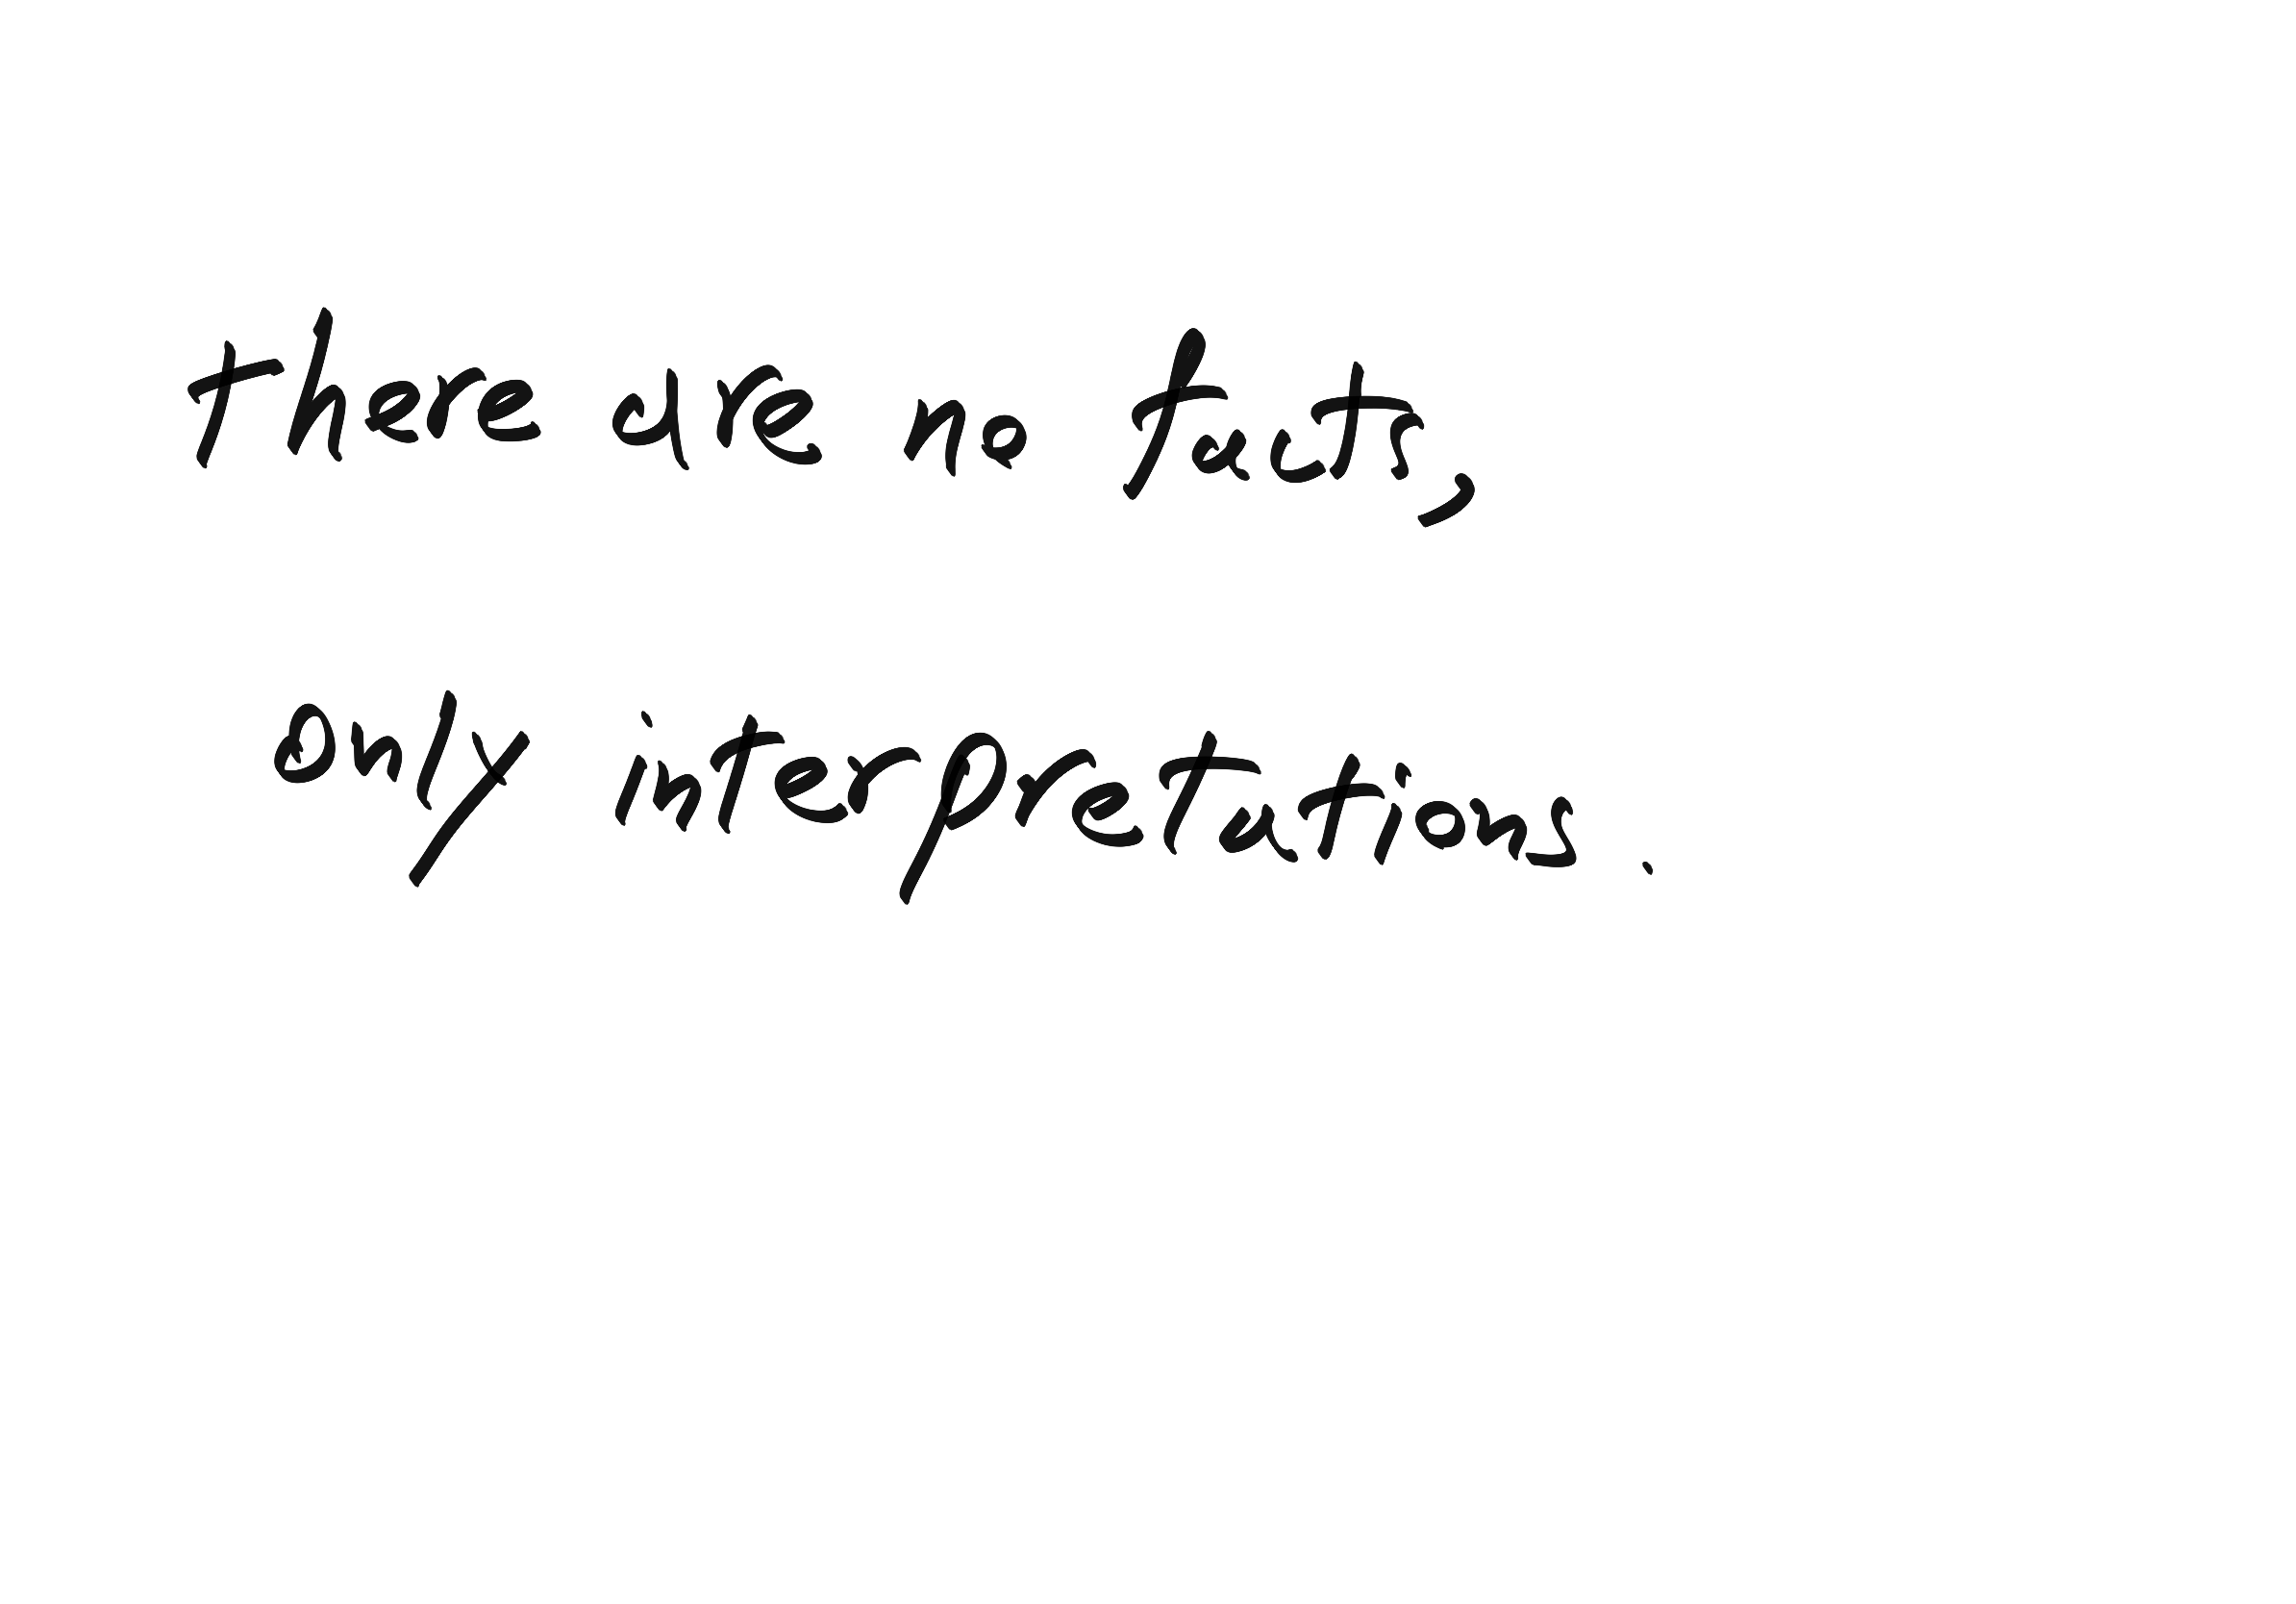 there are no facts,
only interpretations.